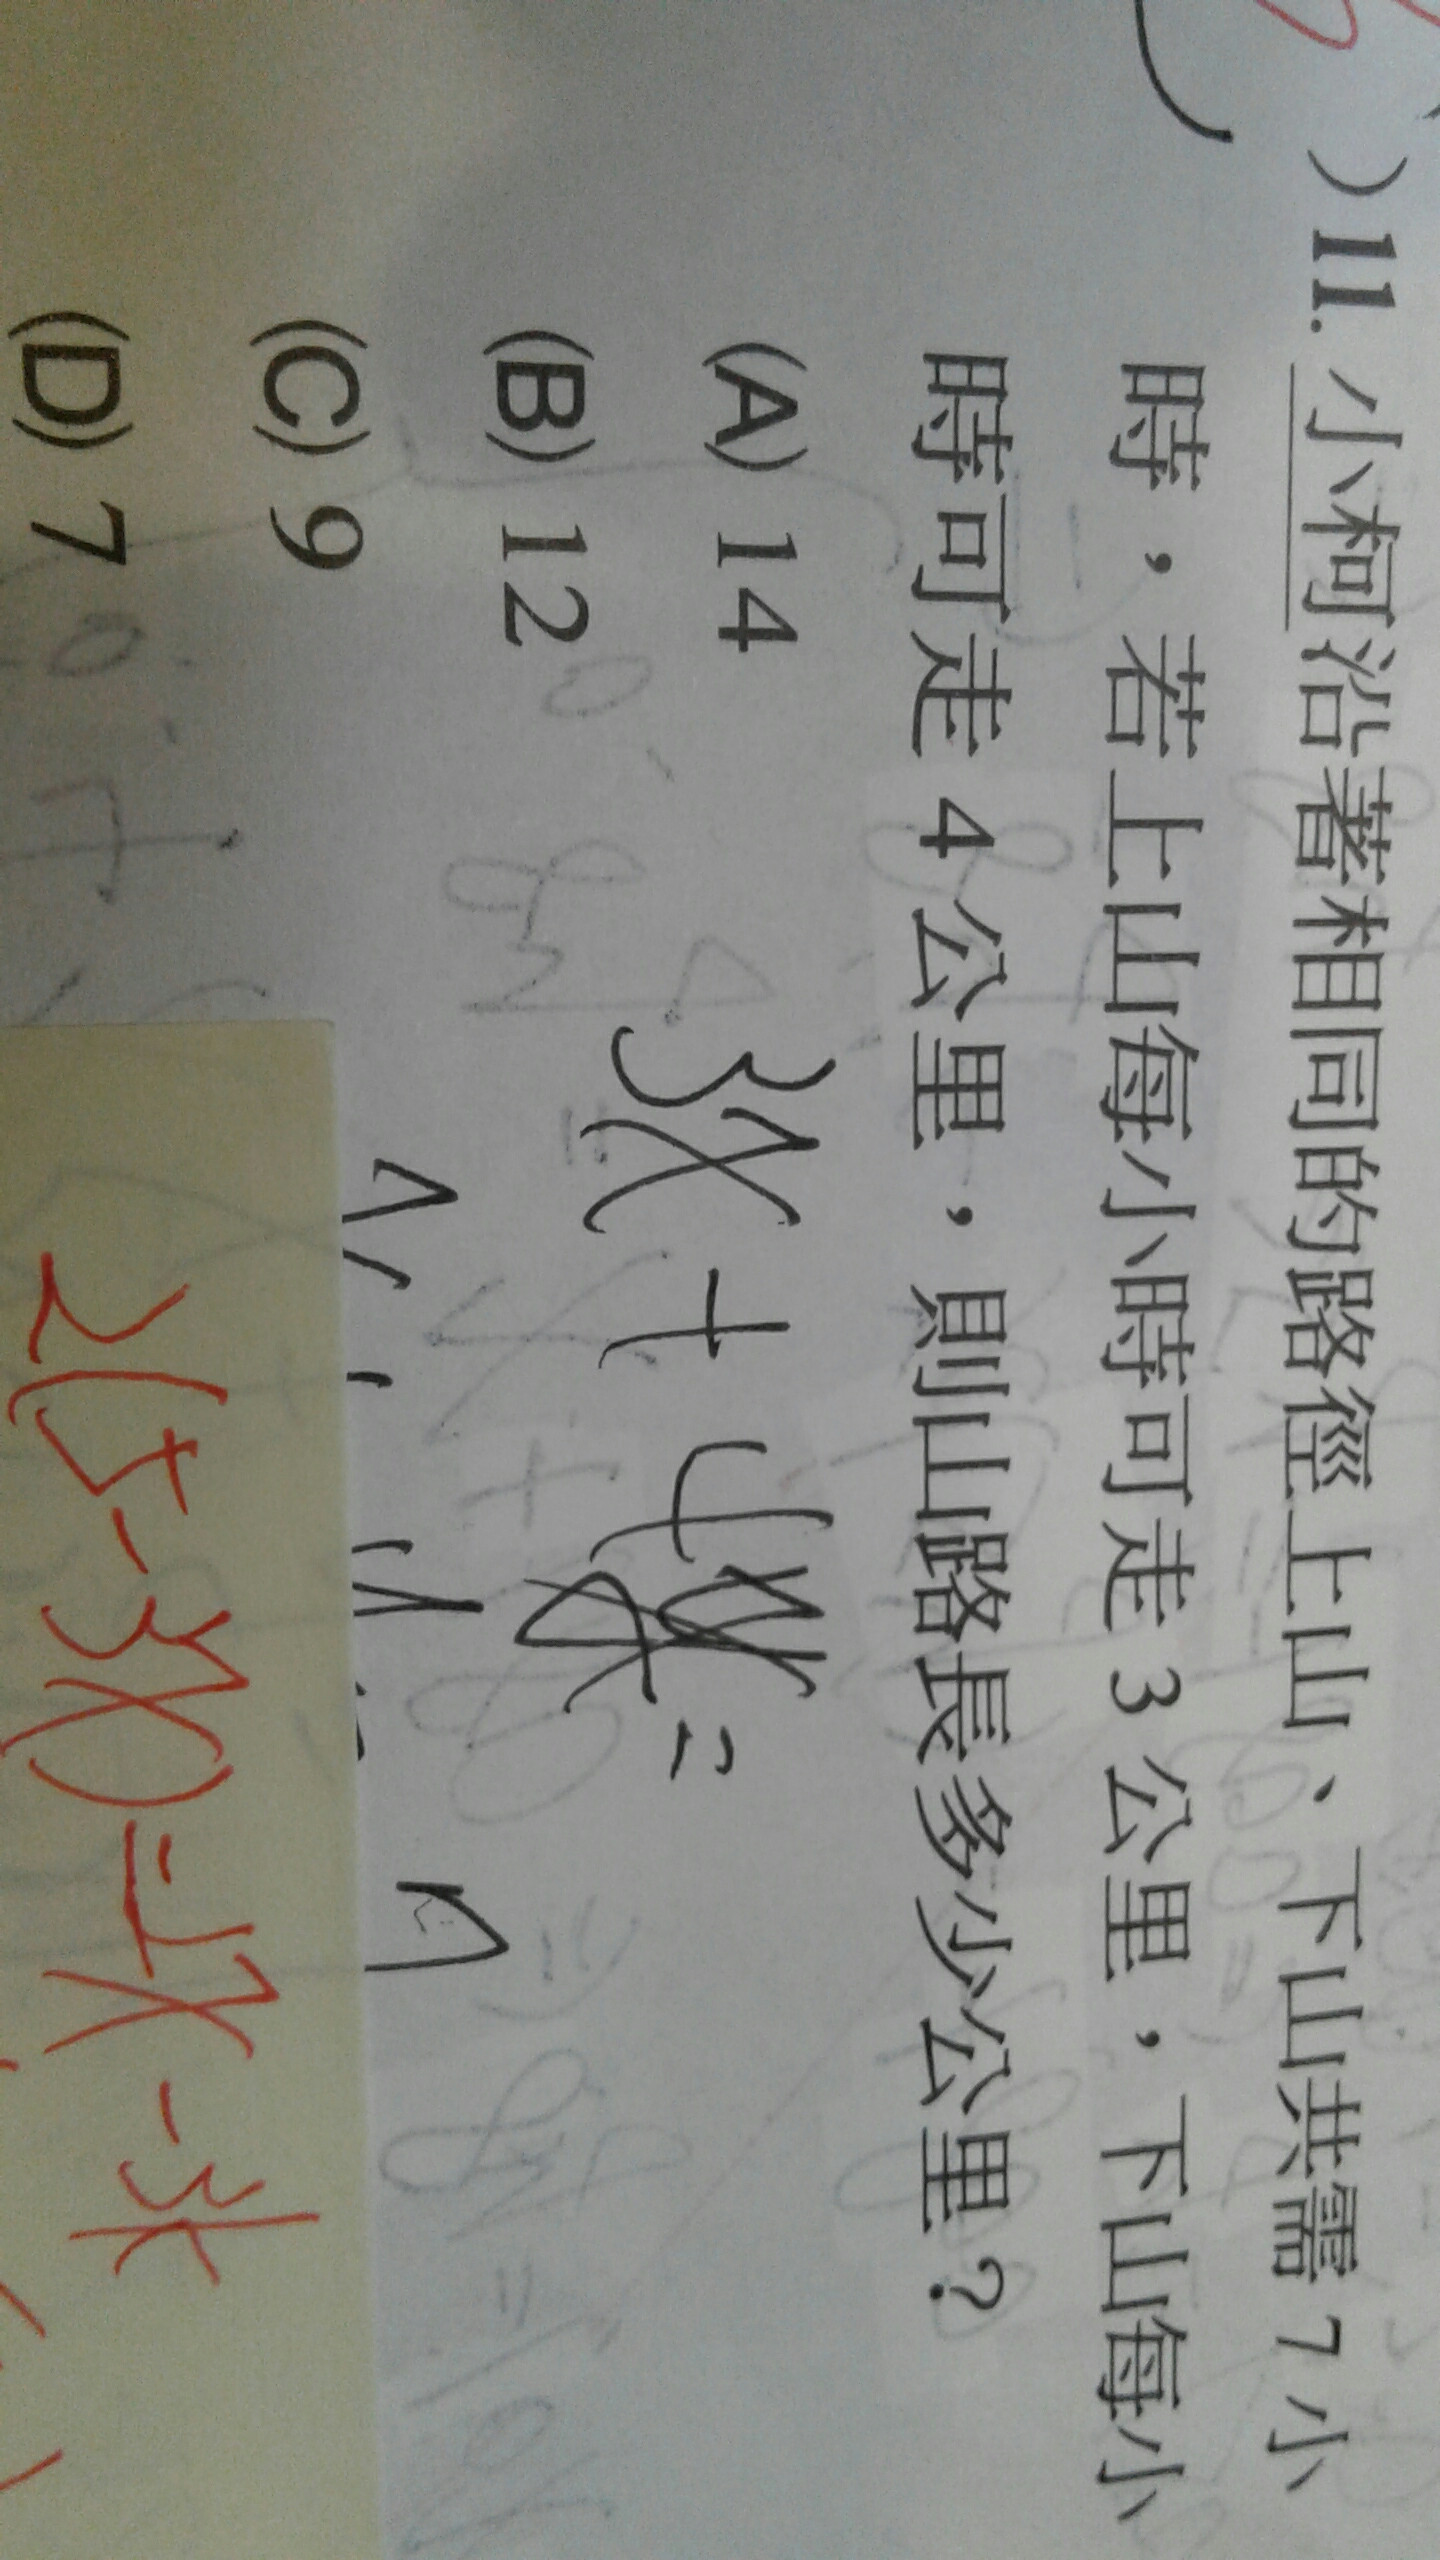 )11. 小柯沿著相同的路徑上山、下山共需 7 小
時，若上山每小時可走 3 公里，下山每小
時可走 4 公里，則山路長多少公里？
(A) 14
(B) 12
(C) 9
(D) 7
3x + 4
2(5-3x)=